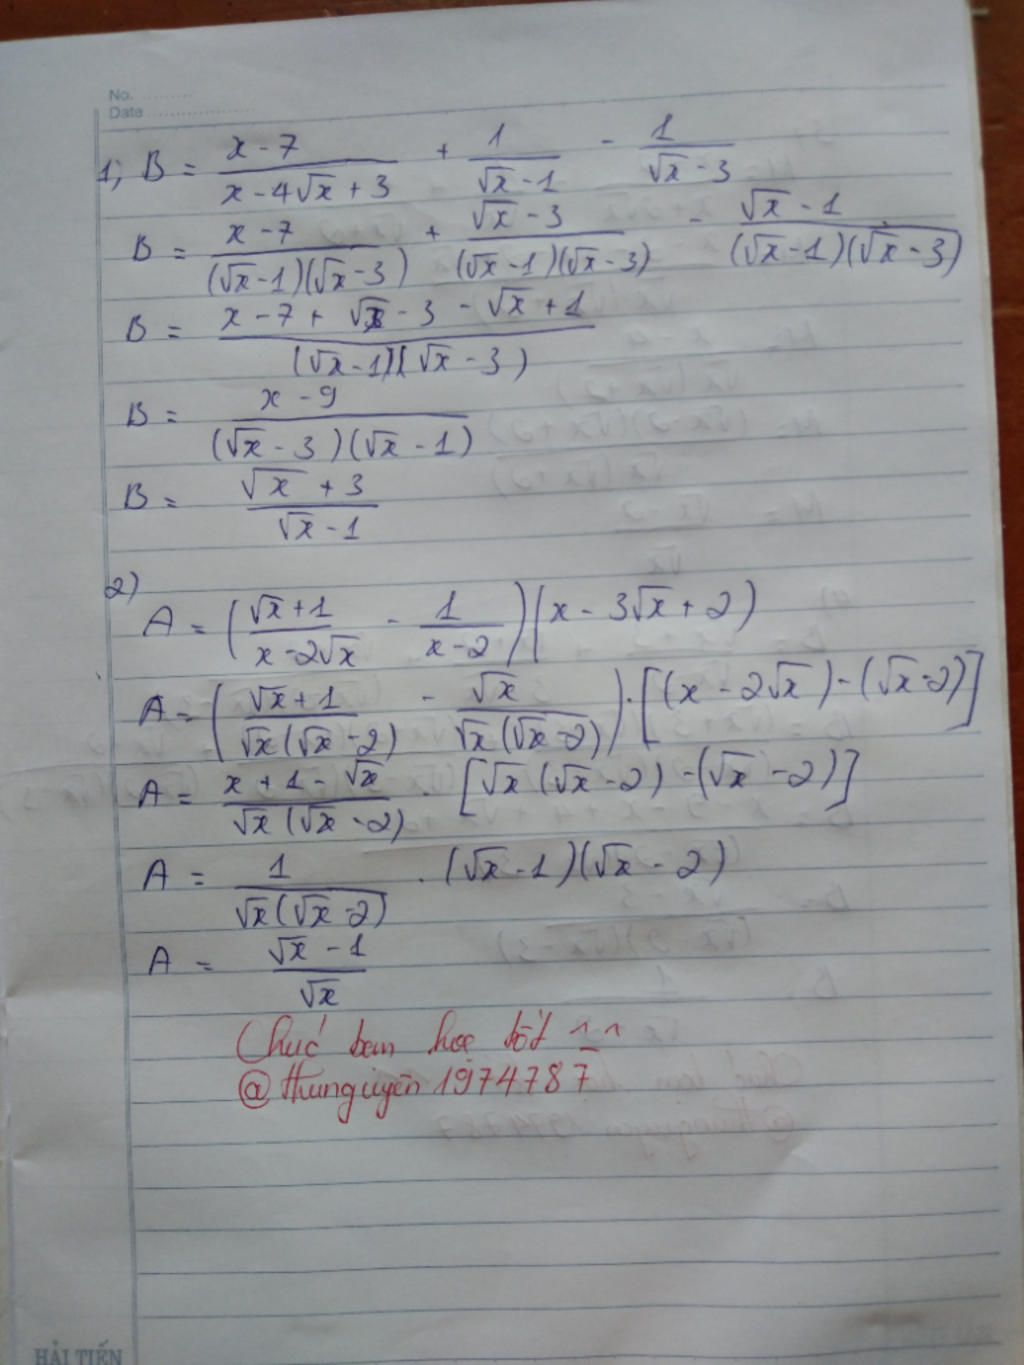 No. ..........
Date ....................
1, B = (x - 7)/(x - 4√x + 3) + 1/(√x - 1) - 1/(√x - 3)
B = (x - 7)/((√x - 1)(√x - 3)) + (√x - 3)/((√x - 1)(√x - 3)) - (√x - 1)/((√x - 1)(√x - 3))
B = (x - 7 + √x - 3 - √x + 1)/((√x - 1)(√x - 3))
B = (x - 9)/((√x - 3)(√x - 1))
B = (√x + 3)/(√x - 1)
2)
A = ((√x + 1)/(x - 2√x) - 1/(x - 2))(x - 3√x + 2)
A = ((√x + 1)/(√x(√x - 2)) - √x/(√x(√x - 2))) . [(x - 2√x) - (√x - 2)]
A = (x + 1 - √x)/(√x(√x - 2)) . [√x(√x - 2) - (√x - 2)]
A = 1/(√x(√x - 2)) . (√x - 1)(√x - 2)
A = (√x - 1)/√x
Chúc bạn học tốt ^^
@thunguyen1974787
HẢI TIẾN